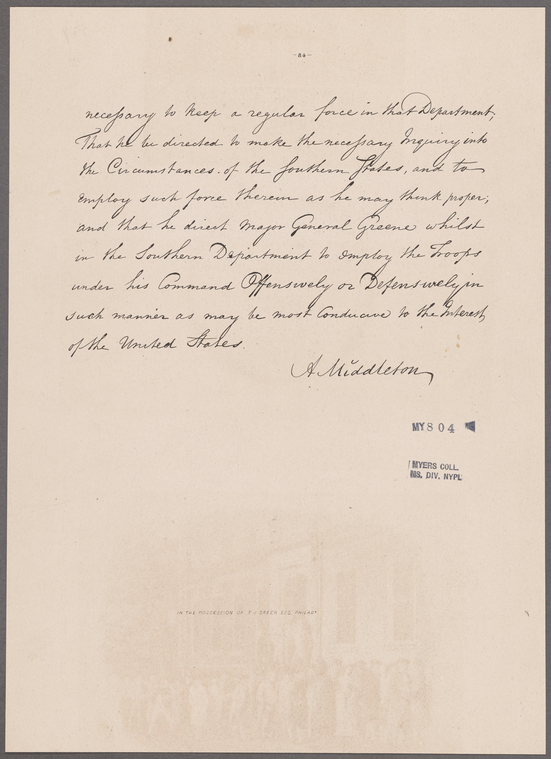 necessary to keep a regular force in that Department,
That he be directed to make the necessary Inquiry into
the Circumstances of the Southern States, and to
employ such force therein as he may think proper;
and that he direct Major General Greene whilst
in the Southern Department to employ the Troops
under his Command Offensively or Defensively in
such manner as may be most Conducive to the Interest,
of the United States.
A Middleton
MY804
MYERS COLL.
MS. DIV. NYPL
IN THE POSSESSION OF